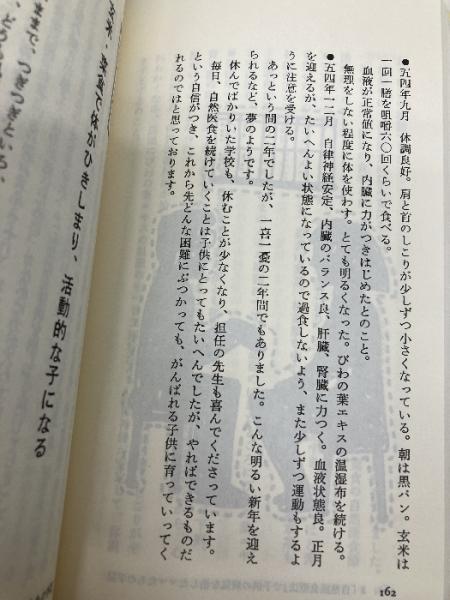 ●五四年九月　休調良好。肩と首のしこりが少しずつ小さくなっている。朝は黒パン。玄米は
一回一膳を咀嚼六〇回くらいで食べる。
血液が正常値になり、内臓に力がつきはじめたとのこと。
無理をしない程度に体を使わす。とても明るくなった。びわの葉エキスの温湿布を続ける。
●五四年一二月　自律神経安定、内臓のバランス良、肝臓、腎臓に力つく。血液状態良。正月
を迎えるが、たいへんよい状態になっているので過食しないよう、また少しずつ運動もするよ
うに注意を受ける。
あっという間の二年でしたが、一喜一憂の二年間でもありました。こんな明るい新年を迎え
られるなど、夢のようです。
休んでばかりいた学校も、休むことが少なくなり、担任の先生も喜んでくださっています。
毎日、自然医食を続けていくことは子供にとってもたいへんでしたが、やればできるものだ
という自信がつき、これから先どんな困難にぶつかっても、がんばれる子供に育っていってく
れるのではと思っております。
162
菜食で体がひきしまり、活動的な子になる
ままで、つぎつぎといろ